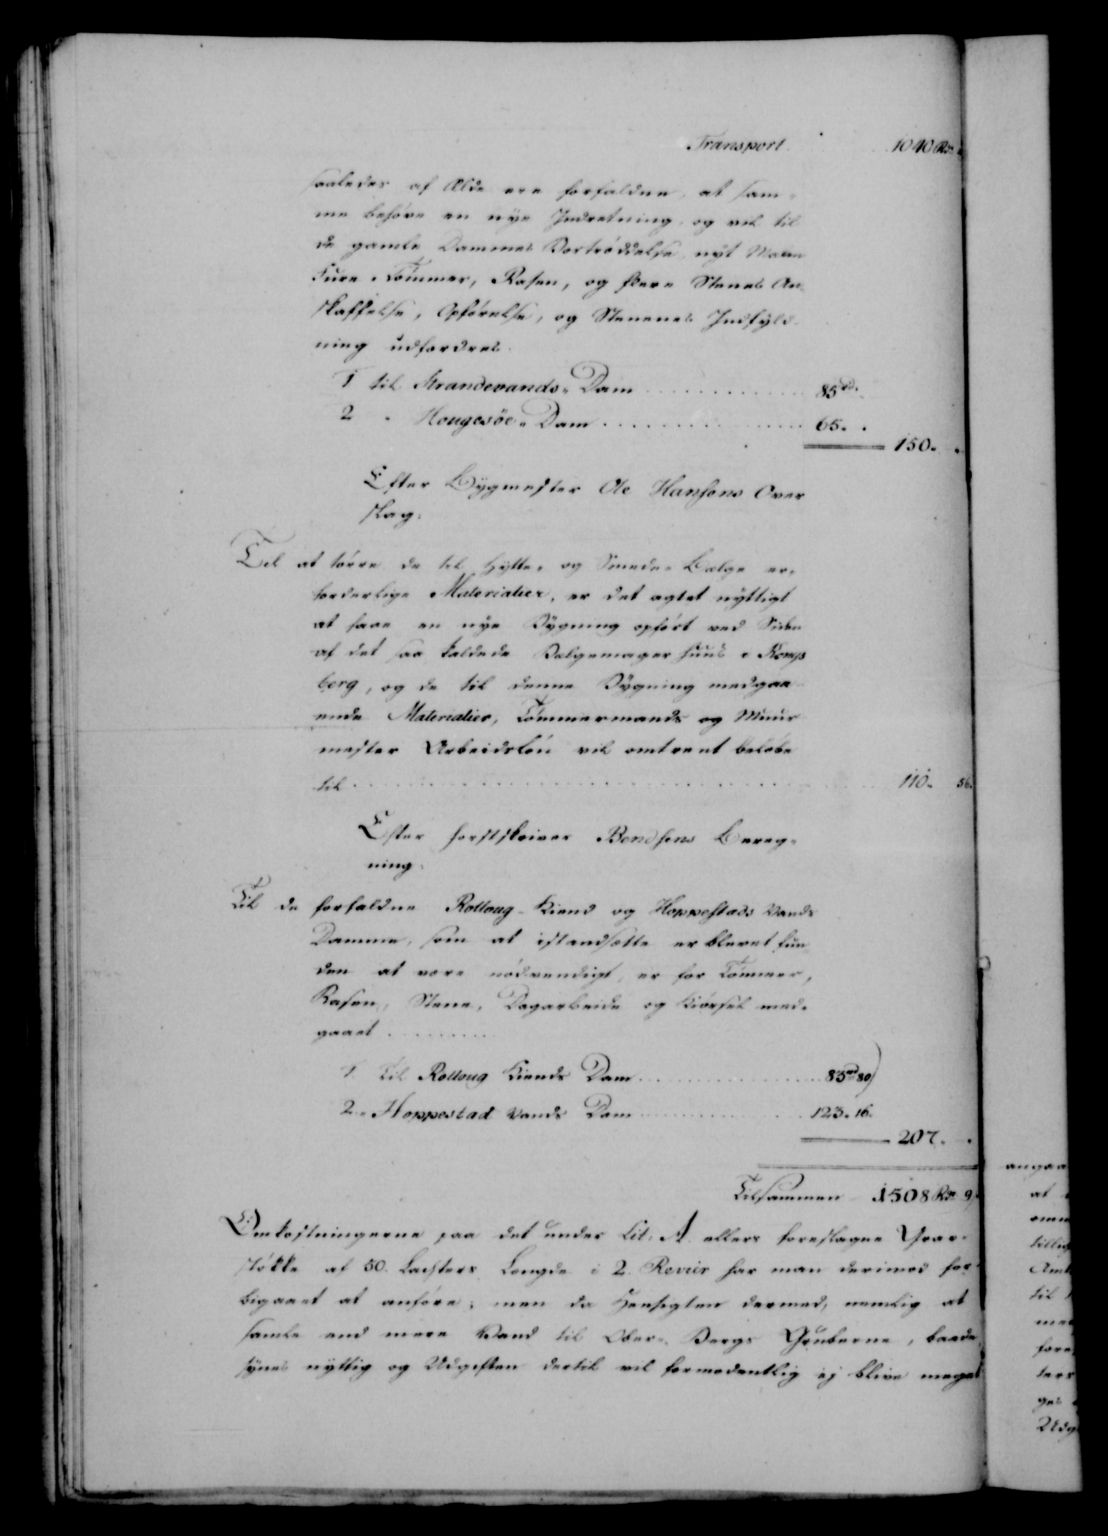 Transport 1040 Rdr
saaledes af Ælde ere forfaldne, at sam-
me behöve en nye Indretning, og vil til
de gamle Dammes Bortröddelse, nyt
Fure-Tömmer, Rasen, og flere Stenes An-
skaffelse, Opförelse, og Stenenes Indfyld-
ning udfordres.
1 til Strandevands-Dam 85 rd.
2 - Hougesöe-Dam 65. -
150. -
Efter Bÿgmester Ole Hansens Over
slag.
Til at törre de til Hytte- og Smede-Bælge er-
forderlige Materialier, er det agtet nÿttigt
at faae en nye Bÿgning opfört ved Siden
af det saa kaldede Bælgemager Huus i Kongs
berg, og de til denne Bÿgning medgaa-
ende Materialier, Tömmermands og Muur
mester Arbeidslön vil omtrent belöbe
til 110. 56.
Efter Forstskriver Bendsens Bereg-
ning.
Til de forfaldne Rolloug-Kiend og Hoppestads Vands
Damme, som at istandsætte er blevet fun-
den at være nödvendigt, er for Tömmer,
Rasen, Stene, Dagarbeide og Kiörsel med-
gaaet
1. Til Rolloug Kiends Dam 83 rd 80
2 - Hoppestad Vands Dam 123. 16.
207. -
Tilsammen 1508 Rdr 9
Omkostningerne paa det under Lit: A. ellers foreslagne
stökke af 50 Lachters Længde i 2 Reviir har man derimod for-
bigaaet at anföre; men da Hensigten dermed, nemlig at
samle end mere Vand til Ober-Bergs Gruberne, baade
synes nÿttig og Udgiften dertil vil formodentlig ej blive meget